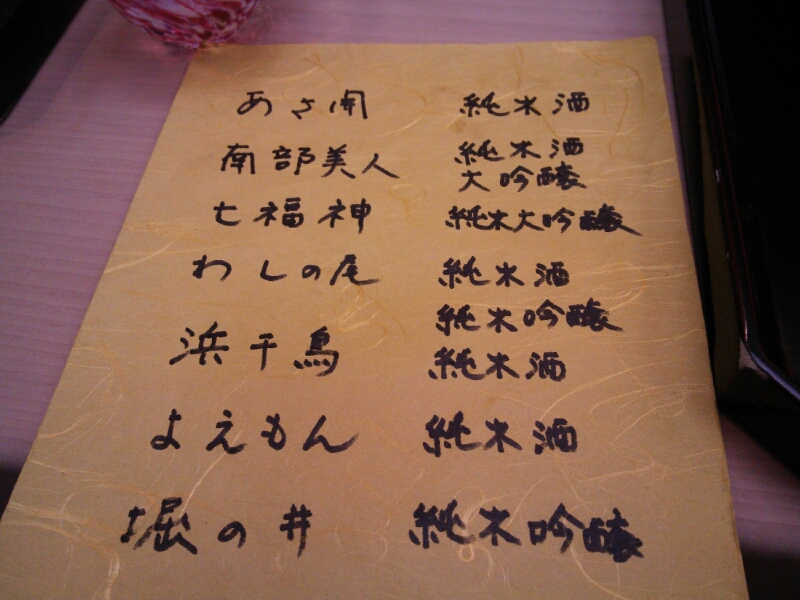 あさ開 純米酒
南部美人 純米酒
大吟醸
七福神 純米大吟醸
わしの尾 純米酒
純米吟醸
浜千鳥 純米酒
よえもん 純米酒
堀の井 純米吟醸